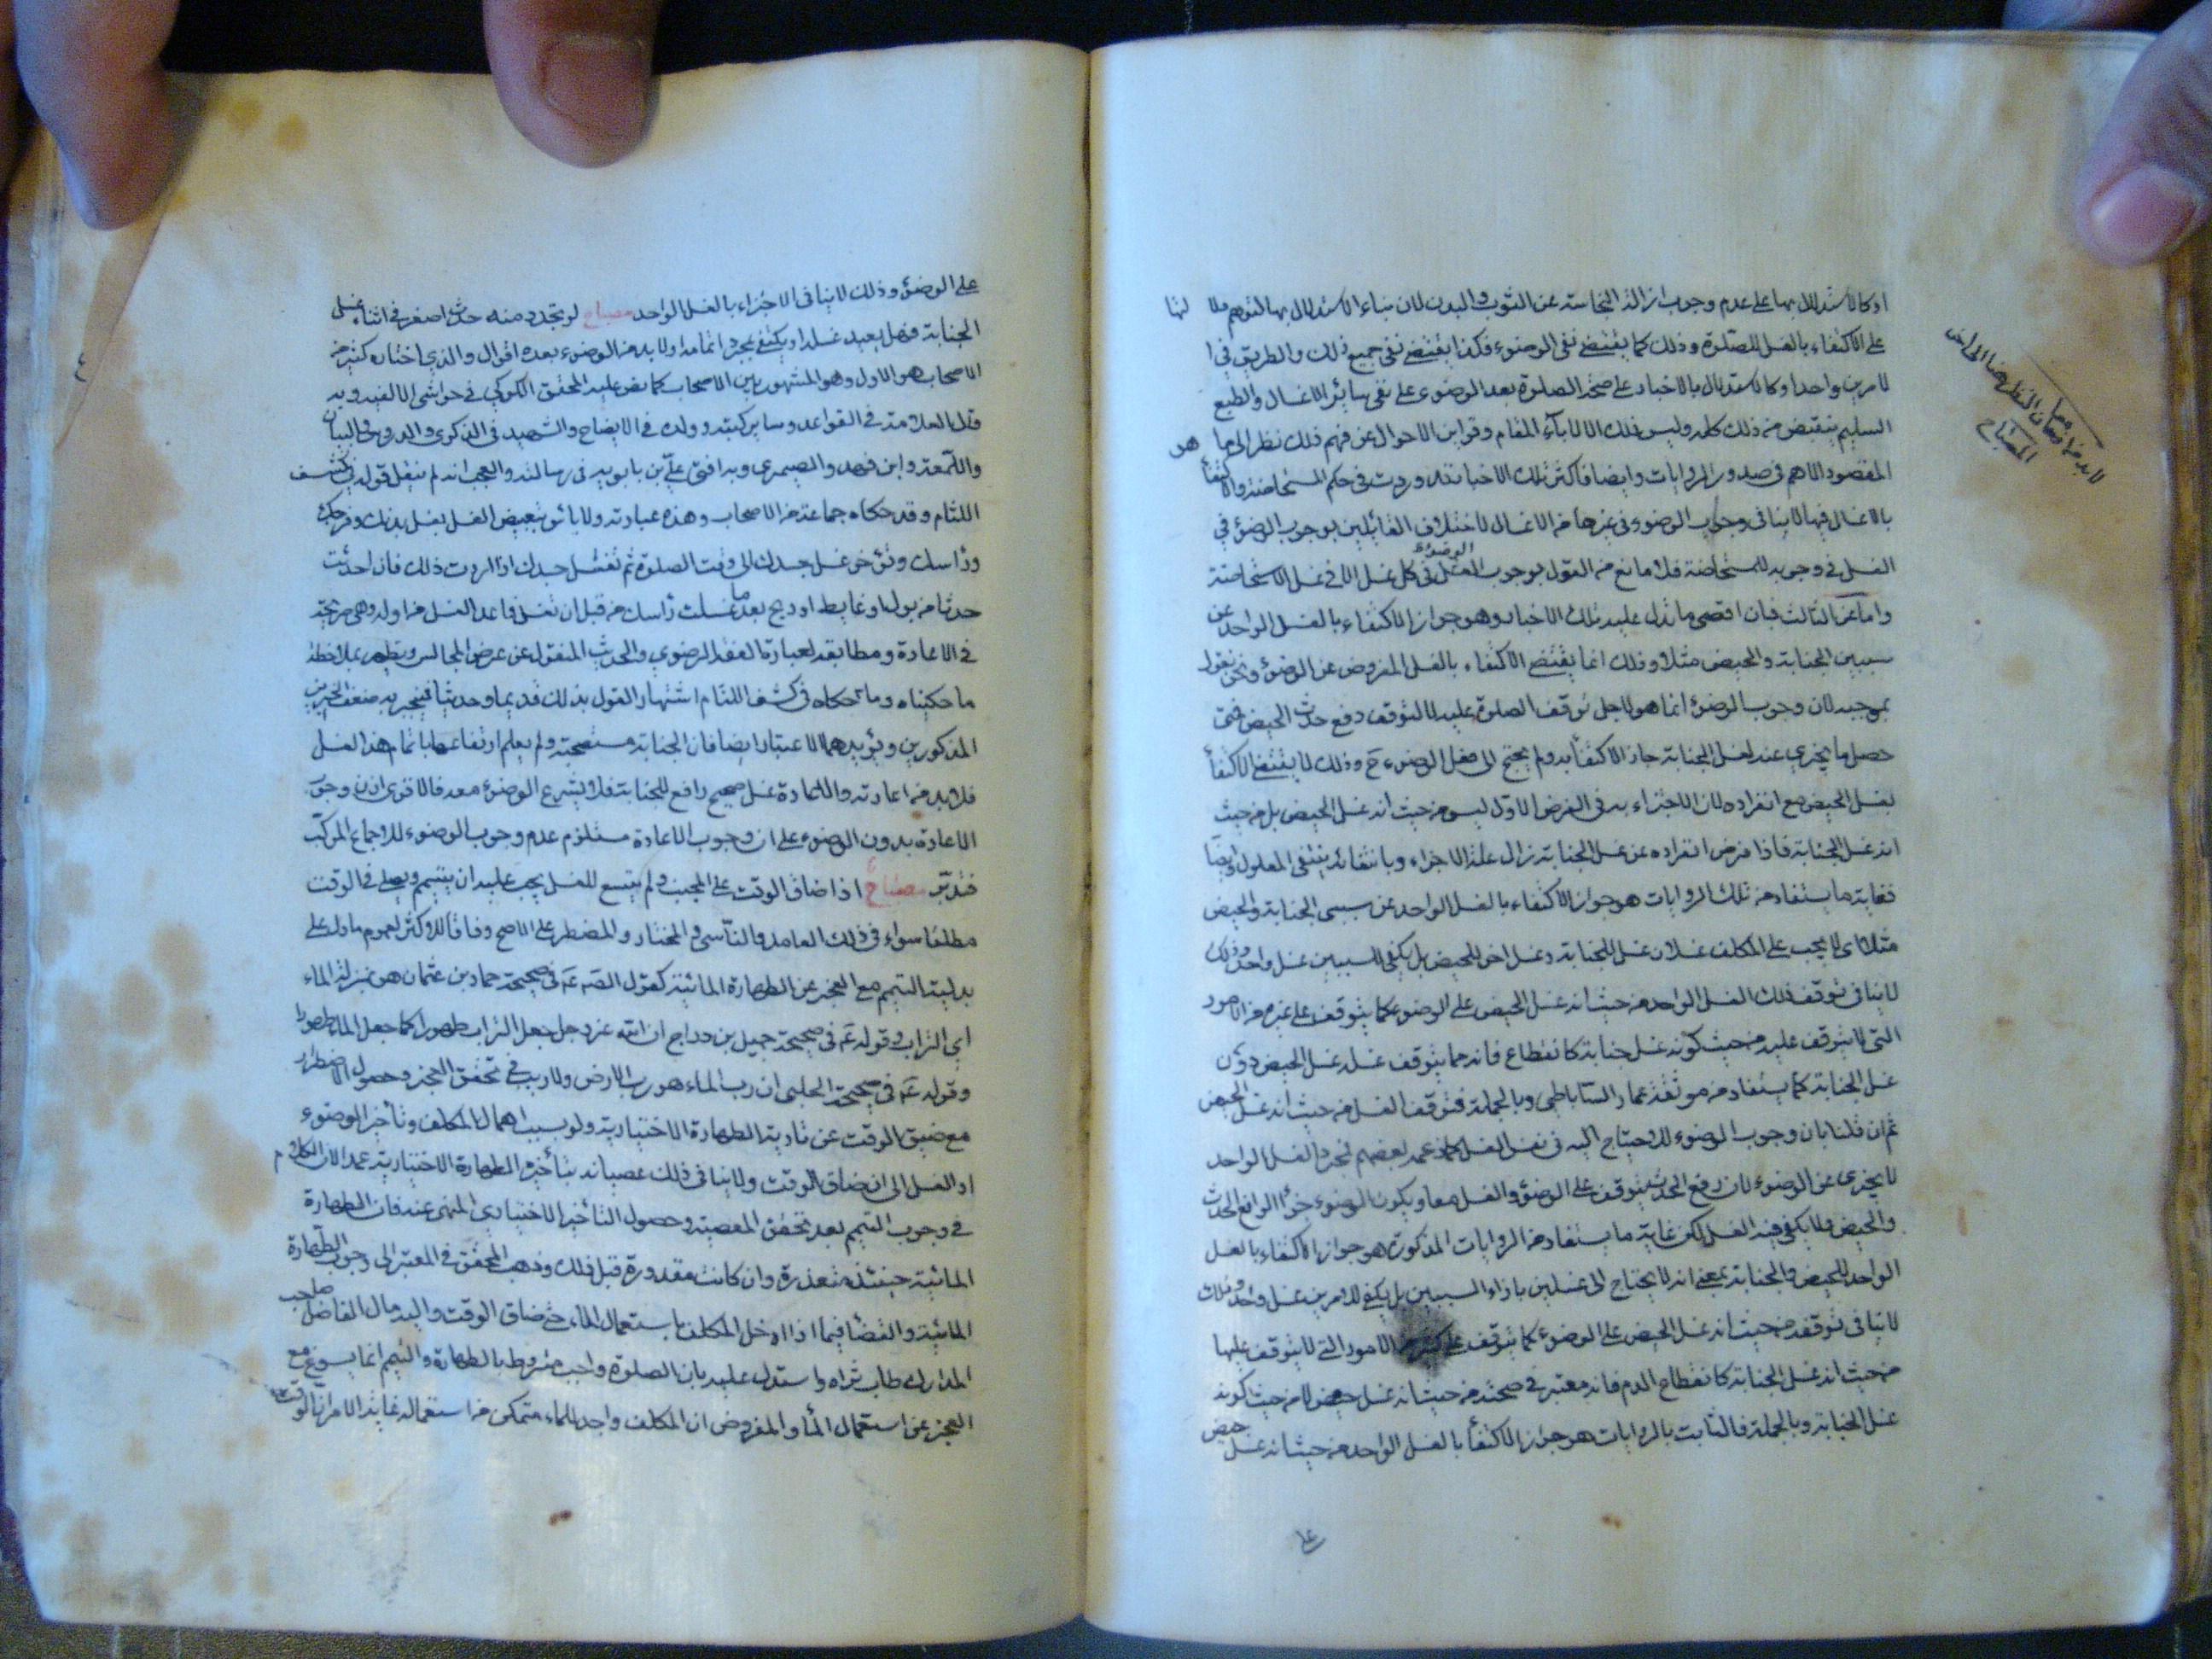 او كالاستدلال بها على عدم وجوب ازالة النجاسة عن الثوب والبدن لان بناء الاستدلال بها لتوهم
على الاكتفاء بالغسل للصلوة وذلك كما يقتضي نفي الوضوء فكذا يقتضي نفي جميع ذلك والطريق في
الامرين واحد او كالاستدلال بالاخبار على صحة الصلوة بعد الوضوء على نفي سائر الاغسال والطبع
السليم ينقبض من ذلك كله وليس ذلك الا لاباء المقام وقراين الاحوال عن فهم ذلك نظر الى ما هو
المقصود الاهم في صدور الروايات وايضا فاكثر تلك الاخبار قد وردت في حكم المستحاضة والاكتفاء
بالاغسال فيها لا ينافي وجوب الوضوء في غيرها من الاغسال لاختلاف القائلين بوجوب الوضوء في
الغسل في وجوبه للمستحاضة فلا مانع من القول بوجوب الوضوء في كل غسل الا في غسل الاستحاضة
واما عن الثالث فبان اقصى ما تدل عليه تلك الاخبار وهو جواز الاكتفاء بالغسل الواحد عن
سببين الجنابة والحيض مثلا وذلك انما يقتضي الاكتفاء بالغسل المفروض عن الوضوء ونحن نقول
بموجبه لان وجوب الوضوء انما هو لاجل توقف الصلوة عليه لا لتوقف رفع حدث الحيض فمتى
حصل ما يجزي عنه لغسل الجنابة جاز الاكتفاء به ولم يحتج الى فعل الوضوء ح وذلك لا يقتضي الاكتفاء
بغسل الحيض مع انفراده لان الاجتزاء به في الفرض الاول ليس من حيث انه غسل الحيض بل من حيث
انه غسل الجنابة فاذا فرض انفراده عن غسل الجنابة تزال علة الاجزاء وبانتفائه ينتفي المعلول وايضا
فغاية ما يستفاد من تلك الروايات هو جواز الاكتفاء بالغسل الواحد عن سببي الجنابة والحيض
مثلا اي لا يجب على المكلف غسلان غسل للجنابة وغسل اخر للحيض بل يكفي للسببين غسل واحد وذلك
لا ينافي توقف ذلك الغسل الواحد من حيث انه غسل الحيض على الوضوء كما يتوقف على غيره من الامور
التي لا يتوقف عليه من حيث كونه غسل جنابة كانقطاع فانه مما يتوقف عليه غسل الحيض دون
غسل الجنابة كما يستفاد من موثقة عمار الساباطي وبالجملة فتوقف الغسل من حيث انه غسل الحيض
ثم ان قلنا بان وجوب الوضوء للاحتياج اليه في نفس الغسل كما زعمه بعضهم فمجرد الغسل الواحد
لا يجزي عن الوضوء لان رفع الحدث يتوقف على الوضوء والغسل معا ويكون الوضوء جزءا لرافع الحدث
والحيض فلا يكفي فيه الغسل لكن غاية ما يستفاد من الروايات المذكورة هو جواز الاكتفاء بالغسل
الواحد للحيض والجنابة بمعنى انه لا يحتاج الى غسلين بازاء السببين بل يكفي للامرين غسل واحد وذلك
لا ينافي توقفه من حيث انه غسل الحيض على الوضوء كما يتوقف على كثير من الامور التي لا يتوقف عليها
من حيث انه غسل الجنابة كانقطاع الدم فانه معتبر في صحته من حيث انه غسل حيض لا من حيث كونه
غسل الجنابة وبالجملة فالثابت بالروايات هو جواز الاكتفاء بالغسل الواحد من حيث انه غسل حيض
على الوضوء وذلك لا ينافي الاجزاء بالغسل الواحد مصباح لو تجدد منه حدث اصغر في اثناء غسل
الجنابة فهل يعيد غسله او يكتفي بمجرد اتمامه او لا بد من الوضوء بعده اقوال والذي اختاره كثير من
الاصحاب هو الاول وهو المشهور بين الاصحاب كما نص عليه المحقق الكركي في حواشي الالفية وبه
قال العلامة في القواعد وساير كتبه وولده في الايضاح والشهيد في الذكرى والدروس والبيان
واللمعة وابن فهد والصيمري وبه افتى علي بن بابويه في رسالته والعجب انه لم ينقل قوله في كشف
اللثام وقد حكاه جماعة من الاصحاب وهذه عبارته ولا باس بتبعيض الغسل يغسل يديك وفرجك
ورأسك وتؤخر غسل جسدك الى وقت الصلوة ثم تغسل جسدك اذا اردت ذلك فان احدثت
حدثا من بول او غايط او ريح بعد ما غسلت رأسك من قبل ان تغسل فاعد الغسل من اوله وهي صريحة
في الاعادة ومطابقة لعبارة الفقه الرضوي والحديث المنقول عن عرض المجالس ويظهر بملاحظة
ما حكيناه وما حكاه في كشف اللثام اشتهار القول بذلك قديما وحديثا فينجبر به ضعف الخبرين
المذكورين ويؤيدهما الاعتبار ايضا فان الجنابة مستصحبة ولم يعلم ارتفاعها باتمام هذا الغسل
فلا بد من اعادته والاعادة غسل صحيح رافع للجنابة فلا يشرع الوضوء معه فالاقوى اذن وجوب
الاعادة بدون الوضوء على ان وجوب الاعادة مستلزم عدم وجوب الوضوء للاجماع المركب
فتدبر مصباح اذا ضاق الوقت على المجنب ولم يتسع للغسل يجب عليه ان يتيمم ويصلي في الوقت
مطلقا سواء في ذلك العامد والناسي والمختار والمضطر على الاصح وفاقا للاكثر لعموم ما دل على
بدلية التيمم مع العجز عن الطهارة المائية كقول الصه ع في صحيحة حماد بن عثمان هو بمنزلة الماء
اي التراب وقوله ع في صحيحة جميل بن دراج ان الله عز وجل جعل التراب طهورا كما جعل الماء طهورا
وقوله ع في صحيحة الحلبي ان رب الماء هو رب الارض ولا ريب في تحقق العجز وحصول الاضطرار
مع ضيق الوقت عن تادية الطهارة الاختيارية ولو بسبب اهمال المكلف وتأخير الوضوء
او الغسل الى ان ضاق الوقت ولا ينافي ذلك عصيانه بتأخير الطهارة الاختيارية عمدا لان الكلام
في وجوب التيمم بعد تحقق المعصية وحصول التأخير الاختياري المنهي عنه فان الطهارة
المائية حينئذ متعذرة وان كانت مقدورة قبل ذلك وذهب المحقق في المعتبر الى وجوب الطهارة
المائية والقضا فيما اذا اخل المكلف باستعمال الماء حتى ضاق الوقت واليه مال الفاضل صاحب
المدارك طاب ثراه واستدل عليه بان الصلوة واجب مشروط بالطهارة والتيمم انما يسوغ مع
العجز عن استعمال الماء والمفروض ان المكلف واجد للماء متمكن من استعماله غاية الامر ان الوقت